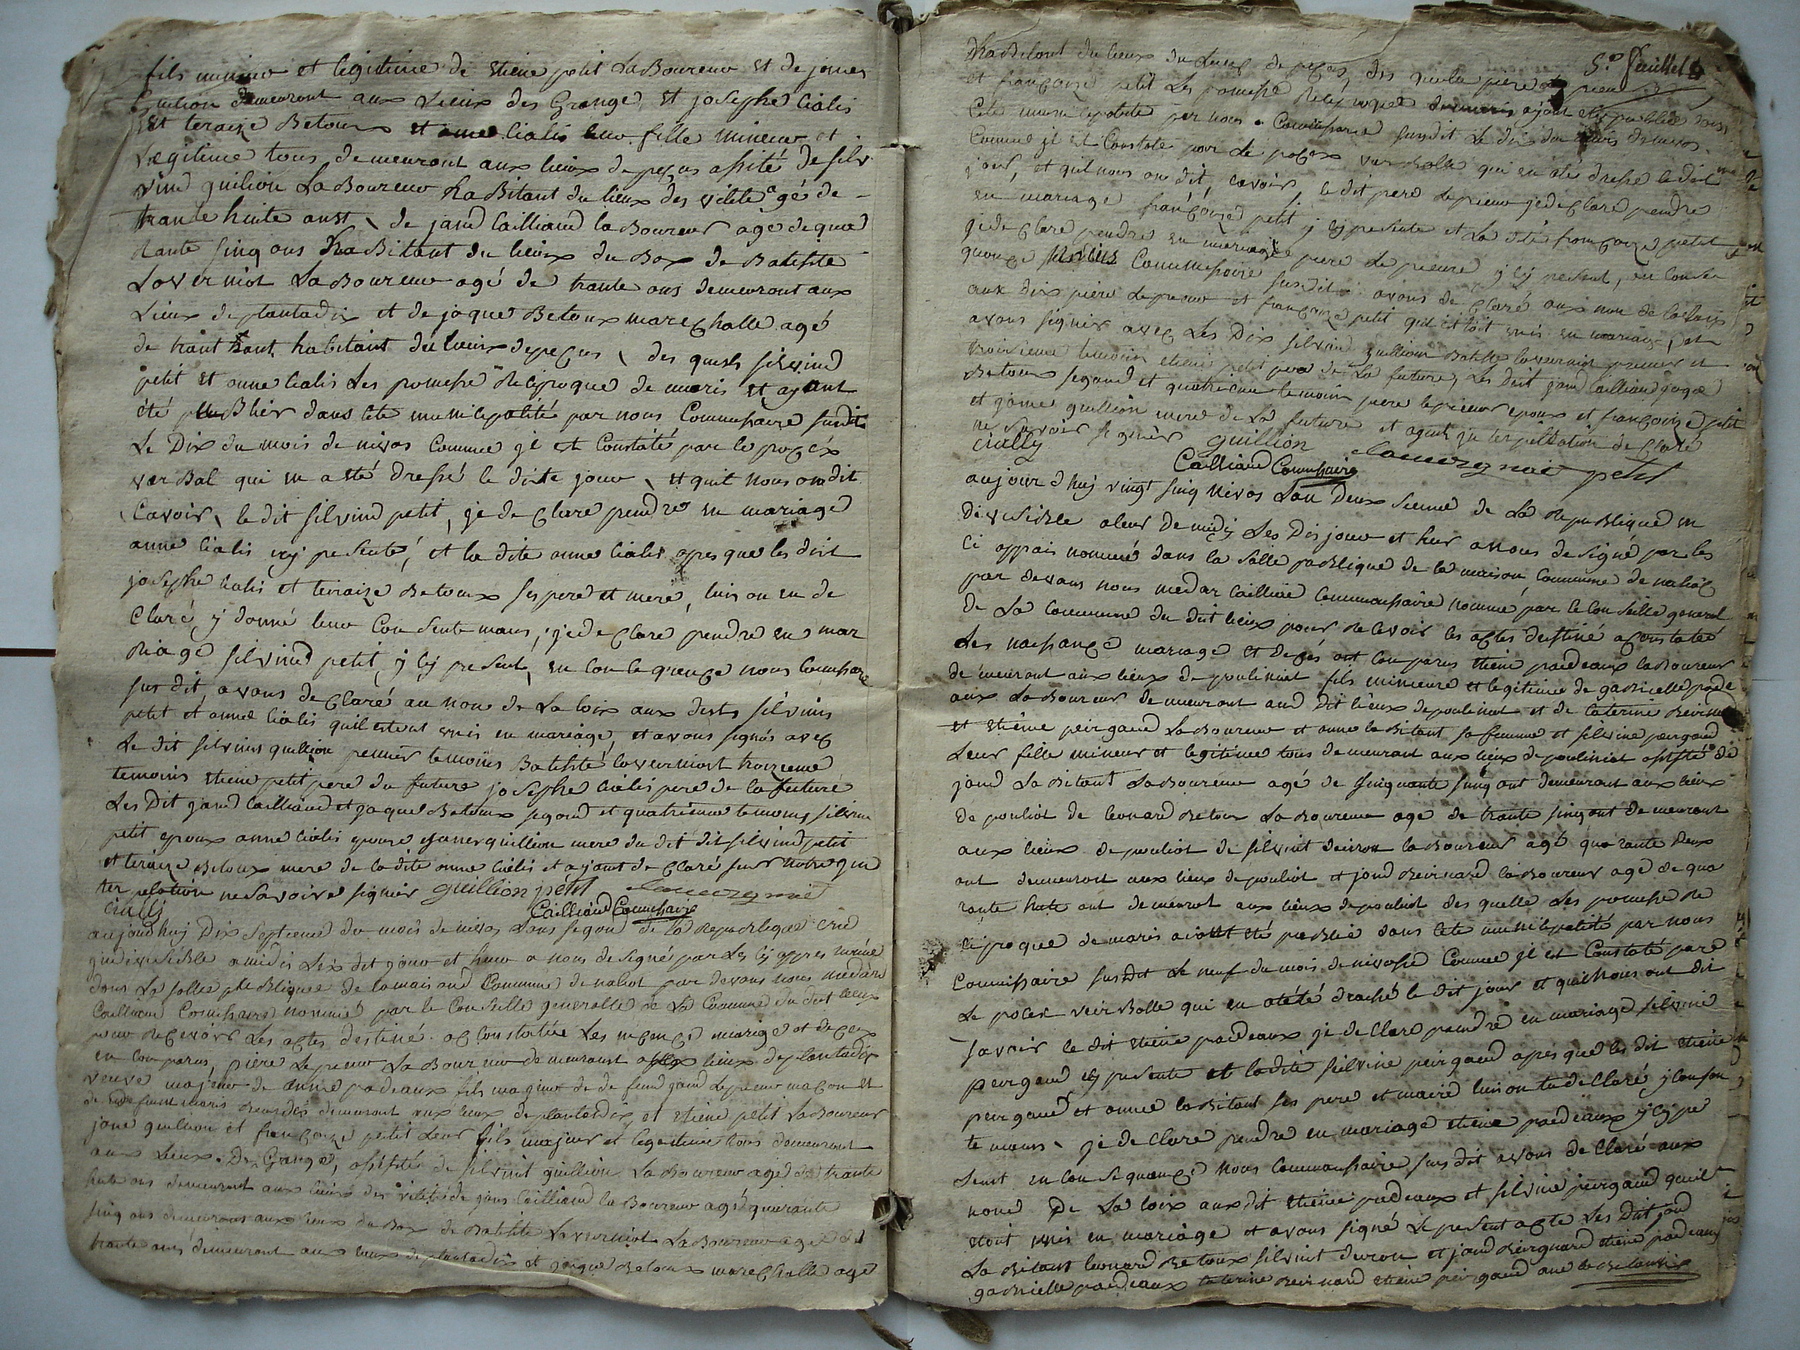 fils mineur et legitime de etiene petit La Boureur et de jeanes
guilion demeuront aux Lieux des Grange, et josephe lialis
et teraize Betoux et anne lialis leur fille mineur et
Legitime tous demeuront aux lieux de peçus assité de silv
vind guilion La Boureur haBitant du lieux des vilette agé de
trante huite anst, de jand Cailliaud la Boureur agé de qua
rante sinq ans haBitant du lieux du Box de Batiste
Laverniot La Boureur agé de trante ans demeuront aux
Lieux de plantadix et de jaque Betoux marechalle agé
de habitant du lieux de peçus, des quels silvind
petit et anne lialis Les promesse Reciproque de maris et ayant
été puBlier dans lete municipalité par nous Commissaire susdit
Le Dix du mois de nivos Comme je et Constaté par le proçés
verBal qui en a été dressé le dite jour, et quil nous on dit
Cavoir, le dit silvind petit, je declare prendre en mariage
anne lialis icy presente, et la dite anne lialis apres que les doit
josephe lialis et teraize Betoux ses pere et mere, luis on en de
Claré, y donné leur Consentemans, je declare prendre en mar
Riage silvind petit, y ly present, en Consequençe nous Commissaire
sus dit, avons declaré au nom de La loix aux dests silvins
petit et anne lialis quil estent unis en mariage et avons signés avec
Le dit silvins guilion premier temoins Batisté lavernioit troizieme
temoins etiene petit pere du future josephe lialis pere de la future
Les Dit jand Cailliaud et jaque Betoux segond et quatrieme temoins silvin
petit epoux anne lialis epouse et janes guillion mere du dit silvind petit
et teraize Betoux mere de la dite anne lialis et ajant declaré sur notre in
ter pelation ne savoire signer guillion petit
Cially Cailliaud Commissaire
aujourdhuy Dix septieme du mois de nivos Lans segond de la Republique une
indivisible a midis Les dit jour et heur a nous designé par Les cy appres
dans La salle publique de la maisand Commune de nabot par devans nous medard
Cailliaud Commissaire nommé par le Conseille generalle de La Commune du dit lieux
pour Reçevoire Les actes destiné a Constatée Les neçençe mariage et deçeés
en Comparus, piere Lepreur La Boureur demeurant aux lieux de plantadix
veuve majeur de anne padeaux fils majeur de de feud jand Lepreur maçon et
de demeuront aux lieux de plantadix et etiene petit La Boureur
jane guilion et françoize petit Leur fils majeur et legestime tous demeuront
aux Lieux Des Grange, assisté de silvint guilion La Boureur agé de trante
huite ans demeuront aux lieux des vilette de jans Cailliaud la Boureur agé quarante
sinq ans demeurans aux lieux du Box de Batiste Lavernioit La Boureur agé de
trante ans demeuront aux lieux de plantadix et jaque Betoux marechalle agé
5e feuillet
haBitant du lieux du Lieux de peças, des quelu piere
et françoize petit Les promesse Reciproque de maris ajant été publiée dans
Cete municipalité par nous Commissaire susdit Le dix du mois de nivos
Comme jl et Constaté par Le proçex verBalle qui en été dressé le dit
jour, et quil nous on dit, savoir, le dit piere Lepreur je declare prendre
en mariage françoize petit y cy presente et La dite françoize petit
je declare prendre en mariage piere Lepreure y cy present, en Conse
quençe nous Commissaire susdit avons declaré aux nom de la loix
aux dix piere Lepreur et françoize petit quil etoit unis en mariage, et
avons signer avec Les Dix silvind guillion Batiste lavernioit premier et
troizieme temoins etiene petit pere de La future, Les doit jand Cailliaud jaque
Betoux segond et quatrieme temoins piere lepreur epoux et françoize petit
et jeane guillion mere de La future et ajant in terpellation declaré
ne savoir signer guillion petit
Cially Cailliaud Commissaire
aujour dhuy vingt sinq nivos Lan Deux sieme de La Republique un
Divisible a leur de midy Les Dis jour et heur a nous designé par les
Ci appris nommé dans la salle publique de la maison Commune de nabot
par devans nous medar Cailliau Commaissaire nommé par le Conseille general
de La Commune du dit lieux pour Recevoir les actes destiné a Constaté
Les naissançe mariage et deçés ont Comparus etiene padeaux laBoureur
demeurant aux lieux de pouliniot fils mineure et legitime de gabrielle pade
aux La Boureur demeurant aud Dit lieux de pouliniot et de Caterine Beirnard
et etiéne peirgaud La Boureur et anne la Bitant sa femme et silvine peirgaud
Leur fille mineur et legitime tous demeurant aux lieux de pouliniot assisté de
jand La Bitant La Boureur agé de sinquante sinq ant demeurant aux lieux
De pouliot de leonard Betoux La Boureur age de trante sinq ant demeurant
aux lieux de pouliot de silvint deiron la Boureur agé quarante Deux
ant demeurant aux lieux de pouliot et jand Beirnard la Boureur agé de qua
rante huite ant demeurant aux lieux de pouliot des quelle Les promesse Re
ciproque de maris aiont été puBlié dans Cete municipalité par nous
Commissaire susDit Le neuf du mois de nivosse Comme jl et Constaté par
Le proces verBalle qui en a été draché le dit jour et quil nous ont dit
Savoir le dit etiéne padeaux je declare prandre en mariage silvine
peirgaud cy presente et la dite silvine peirgaud apres que les dit etiene
peirgaud et anne la Bitant ses pere et maire luis on te declaré y Consen
temans, je declare prendre en mariage etiene padeaux y cy pre
sent en Consequançe nous Commaissaire sus dit avons declaré aux
nom De La loix aux dit etiéne padeaux et silvine peirgaud quil
etoit unis en mariage et avons signé Le present acte Les Dit jand
La Bitant leonard Betoux silvint deiron et jand Beirgnard etiene padeaux
gabrielle padeaux Caterine Beirnard etiene peirgaud ane la Bitant